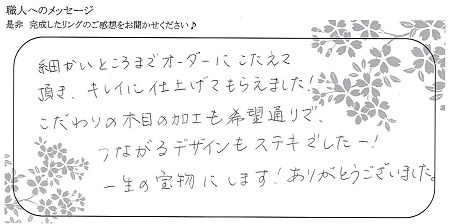 職人へのメッセージ
是非 完成したリングのご感想をお聞かせください♪
細かいところまでオーダーにこたえて
頂き、キレイに仕上げてもらえました!
こだわりの木目の加工も希望通りで、
つながるデザインもステキでしたー!
一生の宝物にします!ありがとうございました。